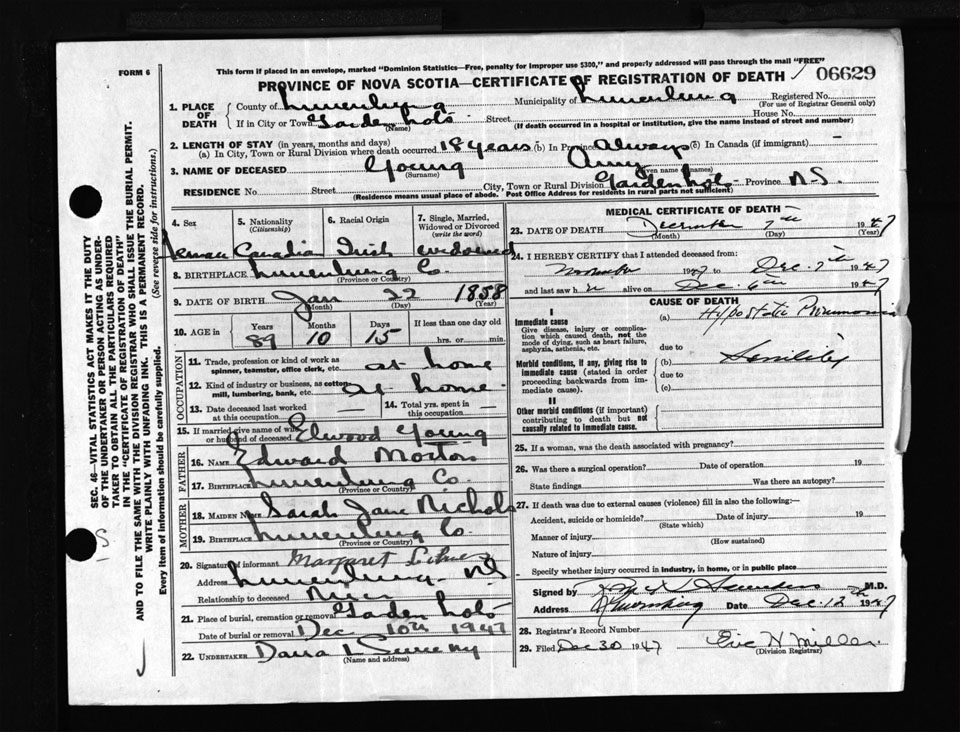 FORM 6
This form if placed in an envelope, marked "Dominion Statistics—Free, penalty for improper use $300," and properly addressed will pass through the mail "FREE"
PROVINCE OF NOVA SCOTIA—CERTIFICATE OF REGISTRATION OF DEATH 06629
1. PLACE OF DEATH
County of Lunenburg Municipality of Lunenburg Registered No.
(For use of Registrar General only)
If in City or Town Garden Lots Street House No.
(Name) (If death occurred in a hospital or institution, give the name instead of street and number)
2. LENGTH OF STAY (in years, months and days)
(a) In City, Town or Rural Division where death occurred 18 years (b) In Province Always (c) In Canada (if immigrant)
3. NAME OF DECEASED Young Amy
(Surname) (Given name (names)
RESIDENCE No. Street City, Town or Rural Division Garden Lots Province N.S.
(Residence means usual place of abode. Post Office Address for residents in rural parts not sufficient)
4. Sex
5. Nationality (Citizenship)
6. Racial Origin
7. Single, Married, Widowed or Divorced (write the word)
Female Canadian Irish widowed
8. BIRTHPLACE Lunenburg Co.
(Province or Country)
9. DATE OF BIRTH Jan 22 1858
(Month) (Day) (Year)
10. AGE in Years Months Days If less than one day old
89 10 15 hrs. or min.
OCCUPATION
11. Trade, profession or kind of work as spinner, teamster, office clerk, etc. at home
12. Kind of industry or business, as cotton mill, lumbering, bank, etc. at home
13. Date deceased last worked at this occupation —
14. Total yrs. spent in this occupation —
15. If married give name of wife or husband of deceased Elwood Young
FATHER
16. NAME Edward Morton
17. Birthplace Lunenburg Co.
(Province or Country)
MOTHER
18. MAIDEN NAME Sarah Jane Nichols
19. BIRTHPLACE Lunenburg Co.
(Province or Country)
20. Signature of informant Margaret
Address Lunenburg NS
Relationship to deceased Niece
21. Place of burial, cremation or removal Garden Lots
Date of burial or removal Dec 10th 1947
22. UNDERTAKER
(Name and address)
MEDICAL CERTIFICATE OF DEATH
23. DATE OF DEATH December 7th 1947
(Month) (Day) (Year)
24. I HEREBY CERTIFY that I attended deceased from:
November 1947 to Dec. 7th 1947
and last saw her alive on Dec. 6th 1947
CAUSE OF DEATH
I
Immediate cause
Give disease, injury or complication which caused death, not the mode of dying, such as heart failure, asphyxia, asthenia, etc.
(a) Hypostatic Pneumonia
due to
Morbid conditions, if any, giving rise to immediate cause (stated in order proceeding backwards from immediate cause).
(b) Senility
due to
(c)
II
Other morbid conditions (if important) contributing to death but not causally related to immediate cause.
25. If a woman, was the death associated with pregnancy?
26. Was there a surgical operation? Date of operation 19
State findings Was there an autopsy?
27. If death was due to external causes (violence) fill in also the following:
Accident, suicide or homicide? Date of injury 19
(State which)
Manner of injury
(How sustained)
Nature of injury
Specify whether injury occurred in industry, in home, or in public place
Signed by Saunders M.D.
Address Lunenburg Date Dec. 12th 1947
28. Registrar's Record Number
29. Filed Dec 30 1947 Eric H Miller
(Division Registrar)
SEC. 46—VITAL STATISTICS ACT MAKES IT THE DUTY
OF THE UNDERTAKER OR PERSON ACTING AS UNDER-
TAKER TO OBTAIN ALL THE PARTICULARS REQUIRED
IN THE "CERTIFICATE OF REGISTRATION OF DEATH"
AND TO FILE THE SAME WITH THE DIVISION REGISTRAR WHO SHALL ISSUE THE BURIAL PERMIT.
WRITE PLAINLY WITH UNFADING INK. THIS IS A PERMANENT RECORD.
Every item of information should be carefully supplied. (See reverse side for instructions.)